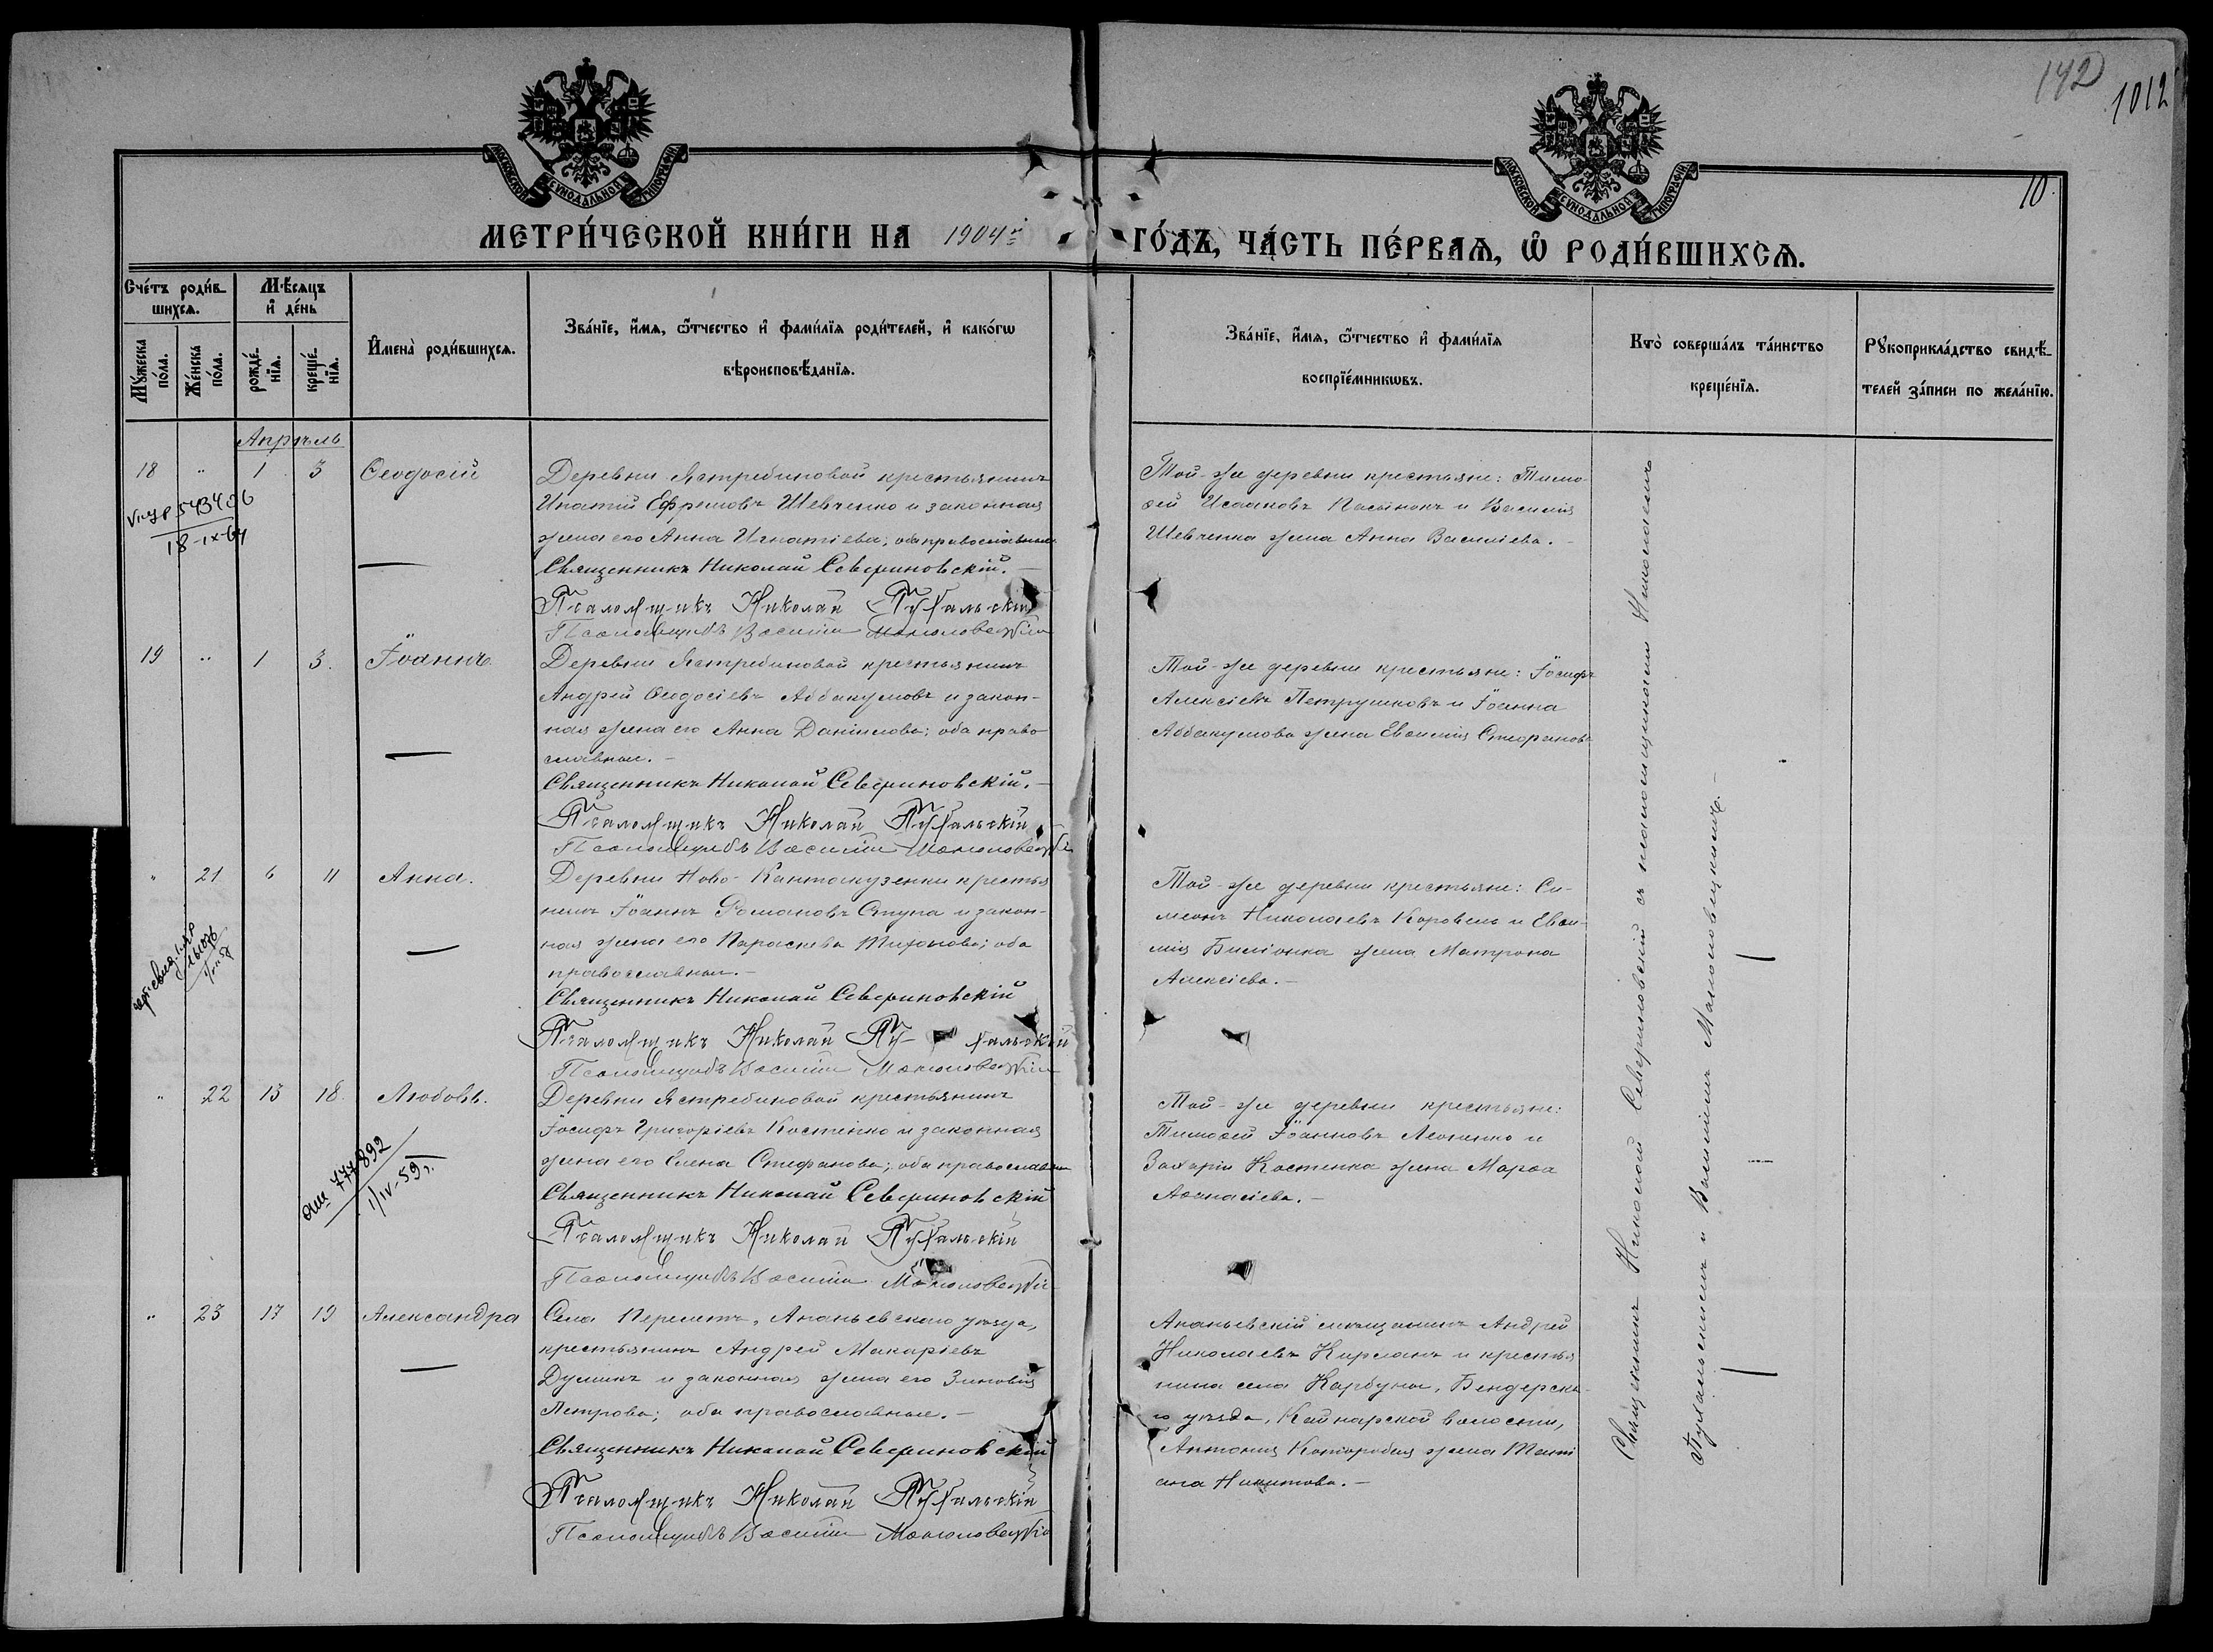 142
1012
10
МОСКОВСКОЙ СѴНОДАЛЬНОЙ ТИПОГРАФІИ
МОСКОВСКОЙ СѴНОДАЛЬНОЙ ТИПОГРАФІИ
МЕТРИ́ЧЕСКОЙ КНИ́ГИ НА 1904 г
ГО́ДЪ, ЧА́СТЬ ПЕ́РВАѦ, Ѡ҆ РОДИ́ВШИХСѦ.
Сче́тъ роди́в-
шихсѧ.
Мѣ́сѧцъ
и҆ де́нь
Мꙋ́жеска
по́ла.
Же́нска
по́ла.
рожде́-
нїѧ.
креще́-
нїѧ.
И҆мена̀ роди́вшихсѧ.
Зва́нїе, и҆́мѧ, ѻ҆́тчество и҆ фами́лїѧ роди́телей, и҆ како́гѡ
вѣроисповѣ́данїѧ.
Зва́нїе, и҆́мѧ, ѻ҆́тчество и҆ фами́лїѧ
воспрїе́мникѡвъ.
Кто̀ соверша́лъ та́инство
креще́нїѧ.
Рꙋкоприкла́дство свидѣ́-
телей за́писи по жела́нїю.
Апрѣль
18 " 1 3 Ѳеодосій
Деревни Ястребиновой крестьянинъ
Ипатій Ефремовъ Шевченко и законная
жена его Анна Игнатіева; оба православные.
Священникъ Николай Севериновскій.
Псаломщикъ Николай Пухальскій
Псаломщикъ Василій Маколовецкій
Той-же деревни крестьяне: Тимо-
ѳей Исааковъ Пасынокъ и Василія
Шевченка жена Анна Василіева.
543406
18-IX-64
19 " 1 3. Іоаннъ.
Деревни Ястребиновой крестьянинъ
Андрей Ѳеодосіевъ Аббакумовъ и закон-
ная жена его Анна Даніилова; оба право
славные.
Священникъ Николай Севериновскій.
Псаломщикъ Николай Пухальскій
Псаломщикъ Василій Маколовецкій
Той-же деревни крестьяне: Іосифъ
Алексіевъ Петрушковъ и Іоанна
Аббакумова жена Евѳимія Стефанова
" 21 6 11 Анна.
Деревни Ново-Кантакузенки крестья
нинъ Іоаннъ Романовъ Ступа и закон-
ная жена его Параскева Тифонова; оба
православные.
Священникъ Николай Севериновскій
Псаломщикъ Николай Пу-хальскій
Псаломщикъ Василій Маколовецкій
Той-же деревни крестьяне: Си-
меонъ Николаевъ Коровель и Евѳи-
мія жена Матрона
Алексіева.
" 22 15 18. Любовь.
Деревни Ястребиновой крестьянинъ
Іосифъ Григоріевъ Костенко и законная
жена его Елена Стефанова; оба православные
Священникъ Николай Севериновскій
Псаломщикъ Николай Пухальскій
Псаломщикъ Василій Маколовецкій
Той-же деревни крестьяне:
Тимоѳей Іоанновъ Леоненко и
Захарія Костенка жена Марѳа
Аѳанасіева.
777892
1/IV-59г.
" 23 17 19 Александра
Села Перелетъ, Ананьевскаго уѣзда,
крестьянинъ Андрей Макаріевъ
Думикъ и законная жена его Зиновія
Петрова; оба православные.
Священникъ Николай Севериновскій
Псаломщикъ Николай Пухальскій
Псаломщикъ Василій Маколовецкій
Ананьевскій мѣщанинъ Андрей
Николаевъ Кирманъ и крестья
нина села Карбуны, Бендерска-
го уѣзда, Кайнарской волости,
Антонія жена Тати
ана Никитова.
Священникъ Николай Севериновскій съ псаломщиками Николаемъ
Пухальскимъ и Василіемъ Маколовецкимъ.